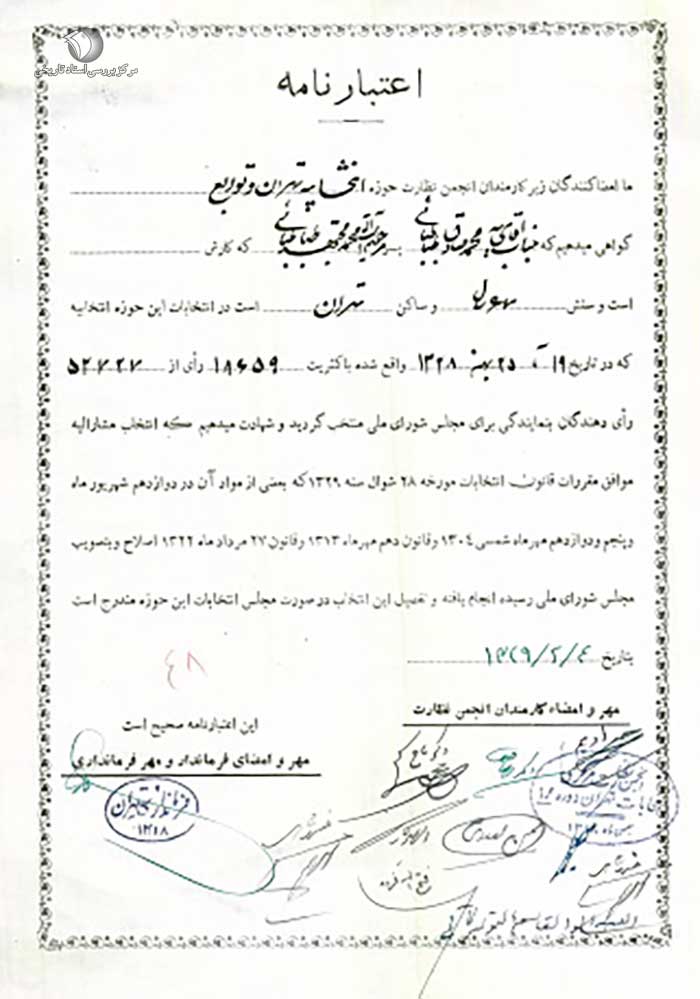 مرکز بررسی اسناد تاریخی
اعتبارنامه
ما امضاکنندگان زیر کارمندان انجمن نظارت حوزه انتخابیه تهران و توابع
گواهی میدهیم که جناب آقای سید محمد صادق طباطبائی پسر مرحوم آیة الله محمد مجتهد طباطبائی که کارش
است و سنش ساکن تهران است در انتخابات این حوزه انتخابیه
که در تاریخ ۱۹ تا ۲۵ بهمن ۱۳۲۸ واقع شده باکثریت ۱۸۶۵۹ رأی از ۵۲۷۲۷
رأی دهندگان بنمایندگی برای مجلس شورای ملی منتخب گردید و شهادت میدهیم که انتخاب مشارالیه
موافق مقررات قانون انتخابات مورخه ۲۸ شوال سنه ۱۳۲۹ که بعضی از مواد آن در دوازدهم شهریور ماه
وپنجم ودوازدهم مهرماه شمسی ۱۳۰۴ وقانون دهم مهرماه ۱۳۱۳ وقانون ۲۷ مرداد ماه ۱۳۲۲ اصلاح وبتصویب
مجلس شورای ملی رسیده انجام یافته و تفصیل این انتخاب در صورت مجلس انتخابات این حوزه مندرج است
بتاریخ ۱۳۲۹/۲/۴
۴۸
مهر و امضاء کارمندان انجمن نظارت
این اعتبارنامه صحیح است
مهر و امضای فرماندار و مهر فرمانداری
فرمانداری تهران
۱۳۱۸